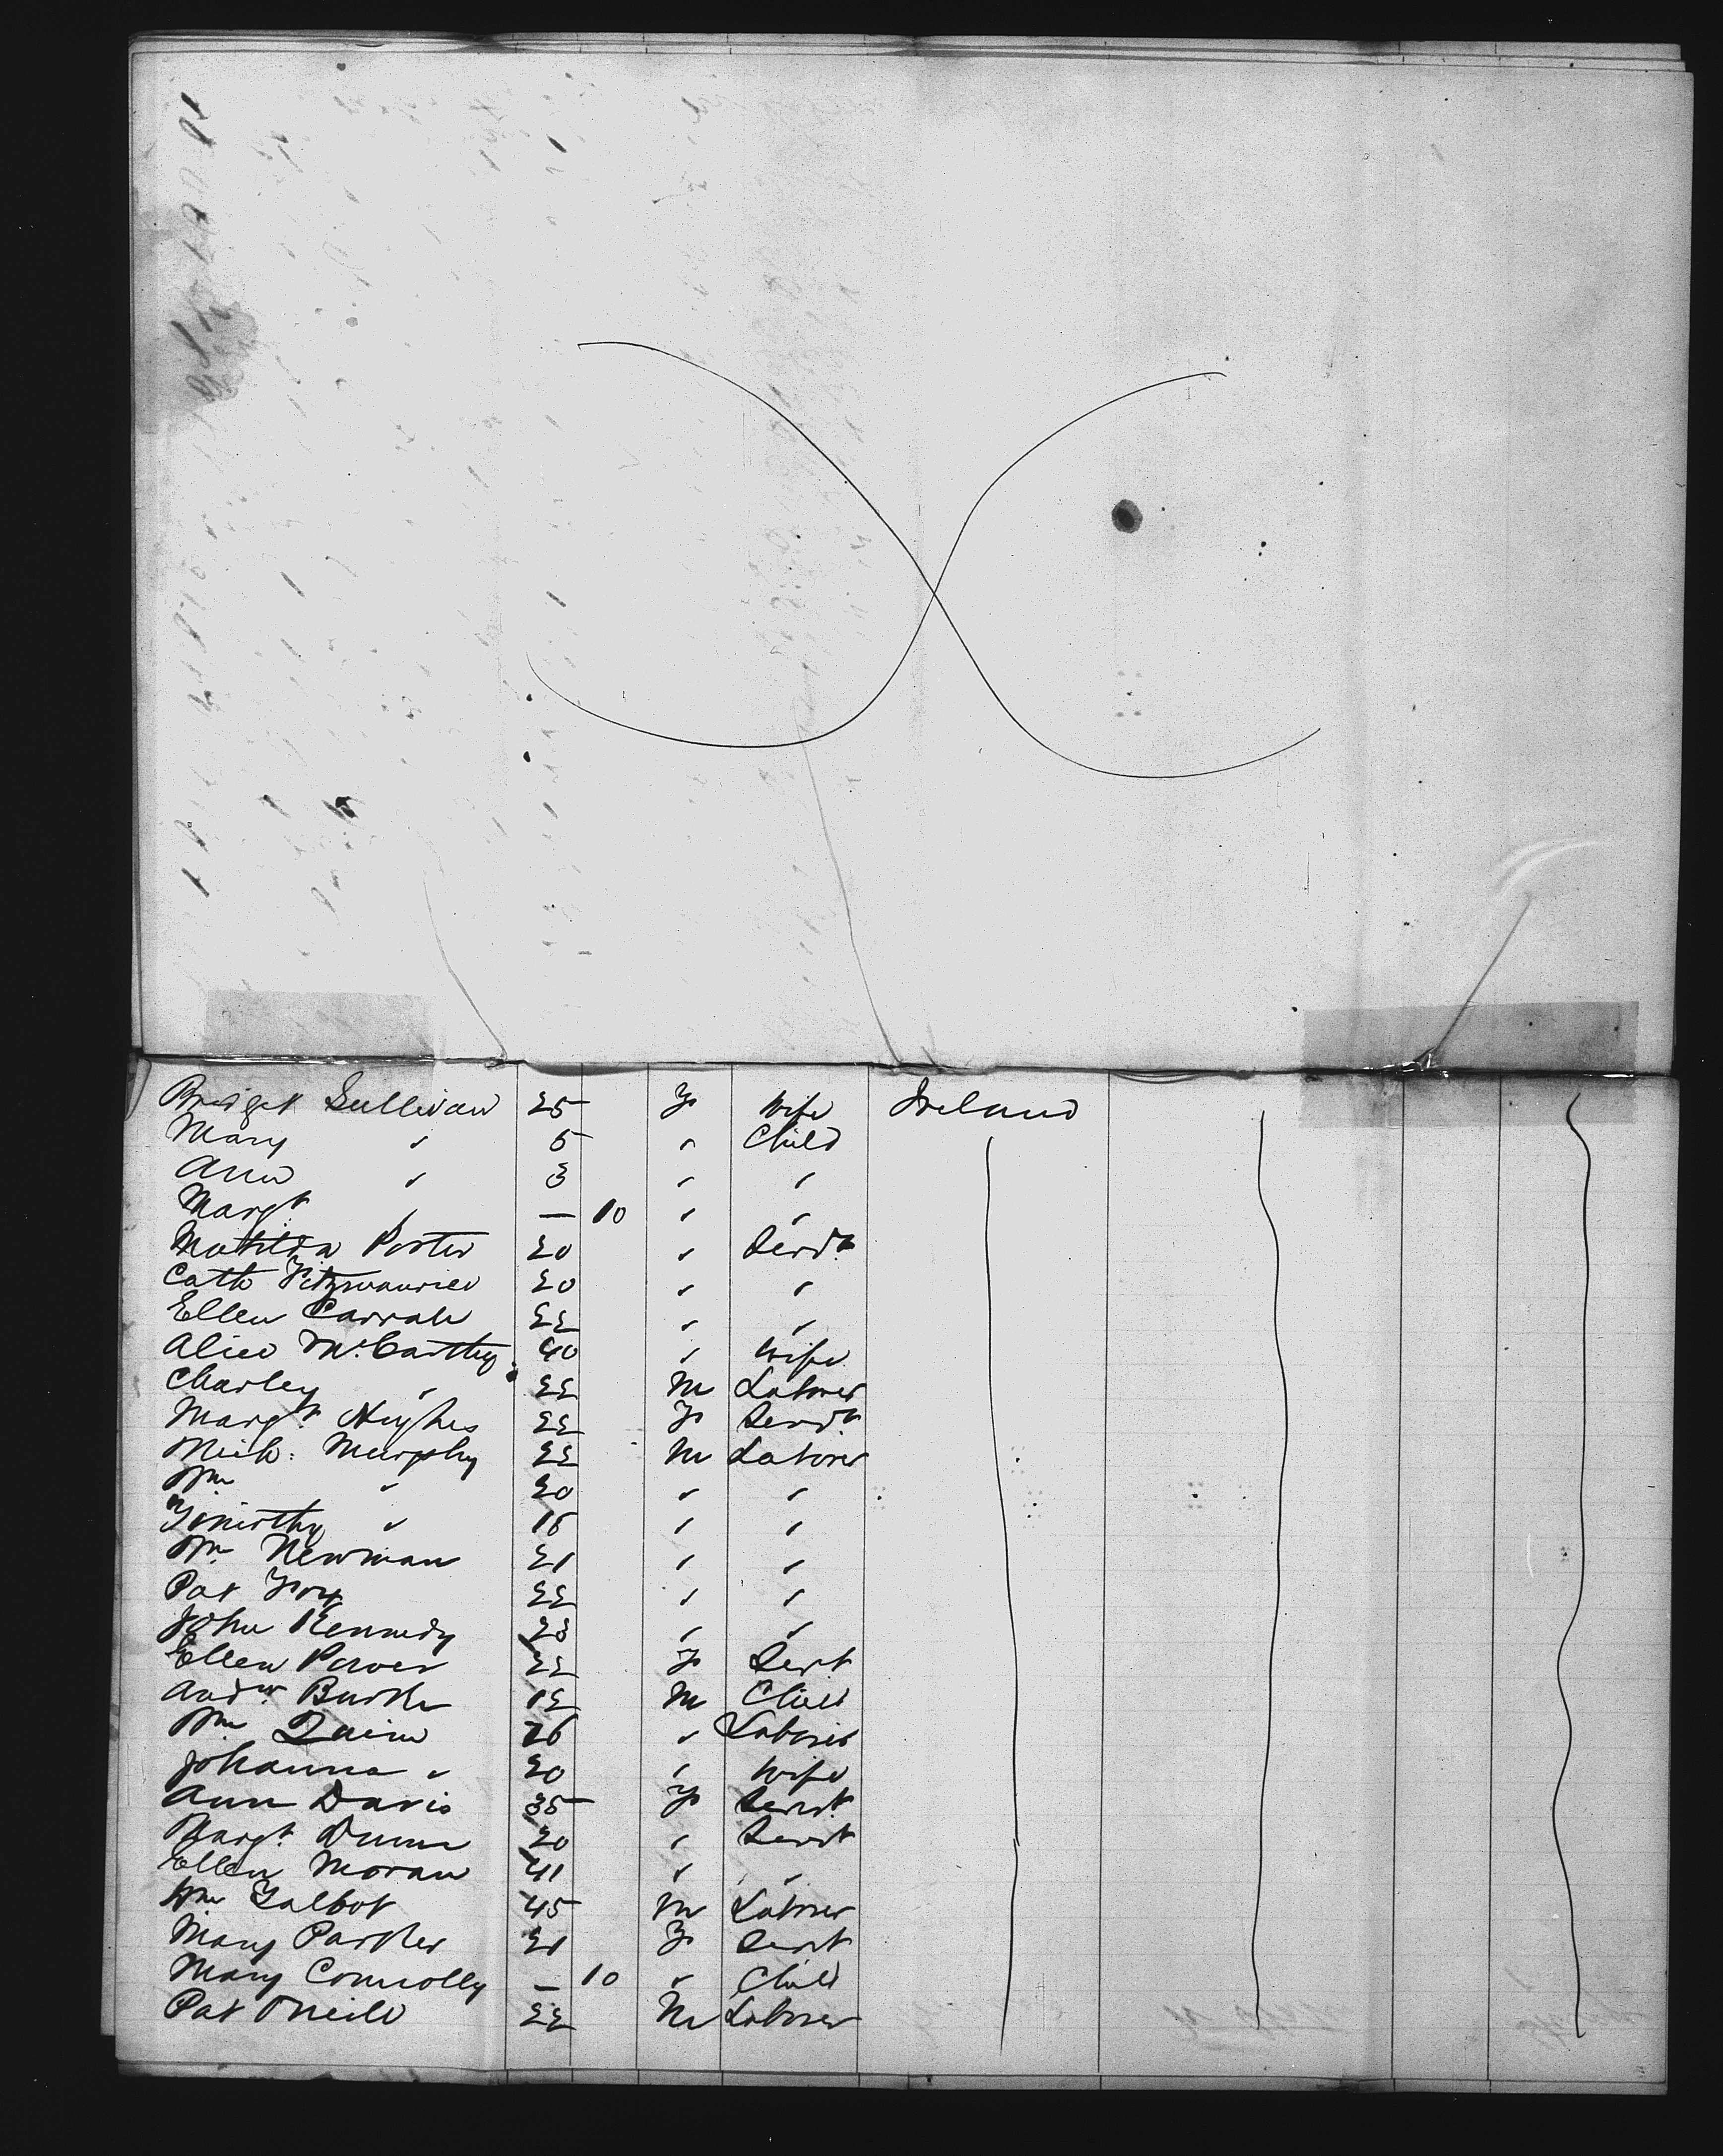 Bridget Sullivan 25 F Wife Ireland
Mary " 5 " Child
Ann " 3 " "
Margt " — 10 " "
Matilda Porter 20 " Servt
Cath Fitzmaurice 20 " "
Ellen 22 " "
Alice McCarthy 40 " Wife
Charley " 22 M Laborer
Margt Hughes 22 F Servt
Mich: Murphy 22 M Laborer
Wm " 20 " "
Timothy " "  "
Wm Newman 21 " "
Pat Fox 22 " "
John Kennedy 23 " "
Ellen Power 22 F Servt
Andw Burke 12 M Child
Wm Quinn 26 " Laborer
Johanna " 20 " Wife
Ann Davis 35 F Servt
Margt Dunn 20 " Servt
Ellen Moran 41 " "
Wm Talbot 45 M Laborer
Mary Parker 21 F Servt
Mary Connolly — 10 " Child
Pat ONeill 22 M Laborer